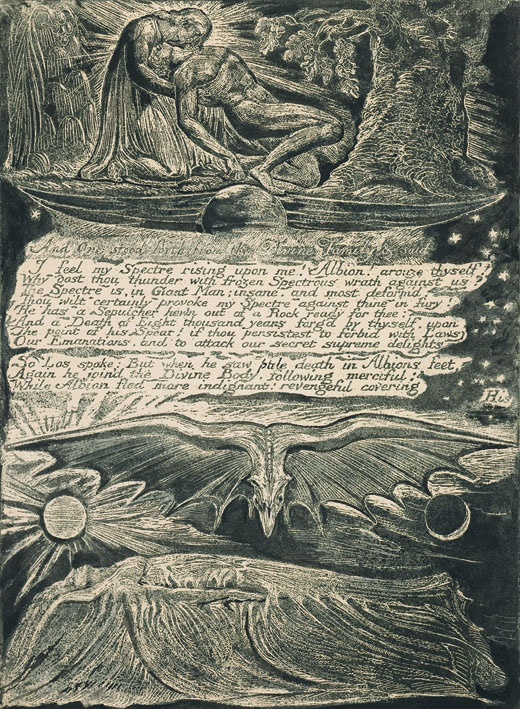 And One stood forth from the Divine Family &,said
I feel my Spectre rising upon me! Albion! arouze thyself!
Why dost thou thunder with frozen Spectrous wrath against us?
The Spectre is, in Giant Man; insane, and most deform'd.
Thou wilt certainly provoke my Spectre against thine in fury!
He has a Sepulcher hewn out of a Rock ready for thee:
And a Death of Eight thousand years forg'd by thyself, upon
The point of his Spear! if thou persistest to forbid with Laws
Our Emanations, and to attack our secret supreme delights
So Los spoke: But when he saw pale death in Albions feet,
Again he join'd the Divine Body, following merciful;
While Albion fled more indignant! revengeful covering
His